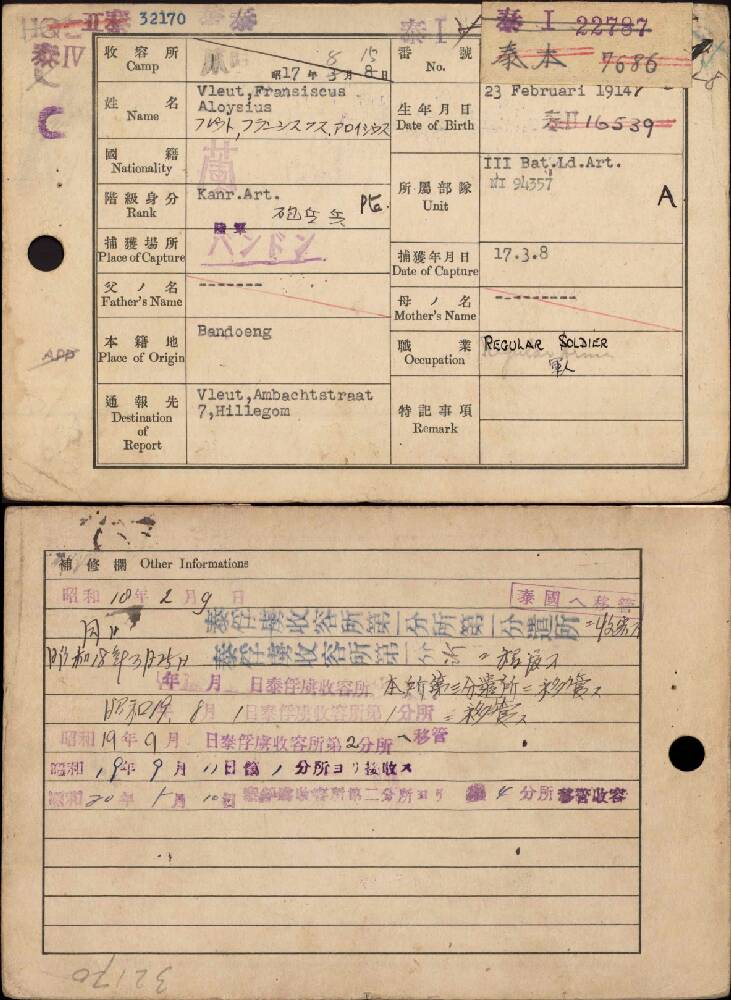 II泰 32170
泰 I 22787
泰IV
泰本 7686
C
收容所 Camp
昭17年 8月 15日
番號 No.
姓名 Name
Vleut,Fransiscus
Aloysius
フレウト,フランシスクス,アロイシウス
生年月日 Date of Birth
23 Februari 1914
泰II 16539
國籍 Nationality
蘭
階級身分 Rank
Kanr.Art.
砲兵 兵 Pte.
所屬部隊 Unit
III Bat.Ld.Art.
94357
A
捕獲場所 Place of Capture
陸軍
バンドン
捕獲年月日 Date of Capture
17.3.8
父ノ名 Father's Name
-------
母ノ名 Mother's Name
---------
本籍地 Place of Origin
Bandoeng
職業 Occupation
REGULAR SOLDIER
軍人
通報先 Destination of Report
Vleut,Ambachtstraat
7,Hillegom
特記事項 Remark
補修欄 Other Informations
昭和18年2月9日 泰國へ移籍
同日 泰俘虜收容所第一分所第一分遣所ニ收容ス
昭和18年3月25日 泰俘虜收容所第一分所ニ
年 月 日泰俘虜收容所 本所第三分遣所ニ移管ス
昭和 年8月1日泰俘虜收容所第1分所ニ移管ス
昭和19年9月 日泰俘虜收容所第2分所へ移管
昭和19年9月11日第1分所ヨリ接收ス
昭和20年 月10日泰俘虜收容所第二分所ヨリ 第4分所移管收容
32170